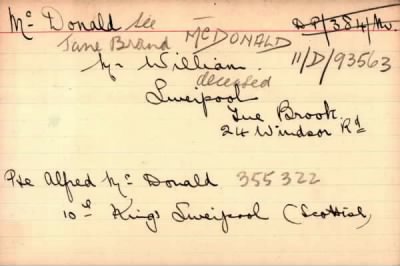 Mc Donald See DP/384/Mo.
Jane Brand MCDONALD
Mr William. 11/D/93563
deceased
Liverpool
Tue Brook.
24 Windsor Rd
Pte Alfred Mc Donald 355322
10th Kings Liverpool (Scottish)